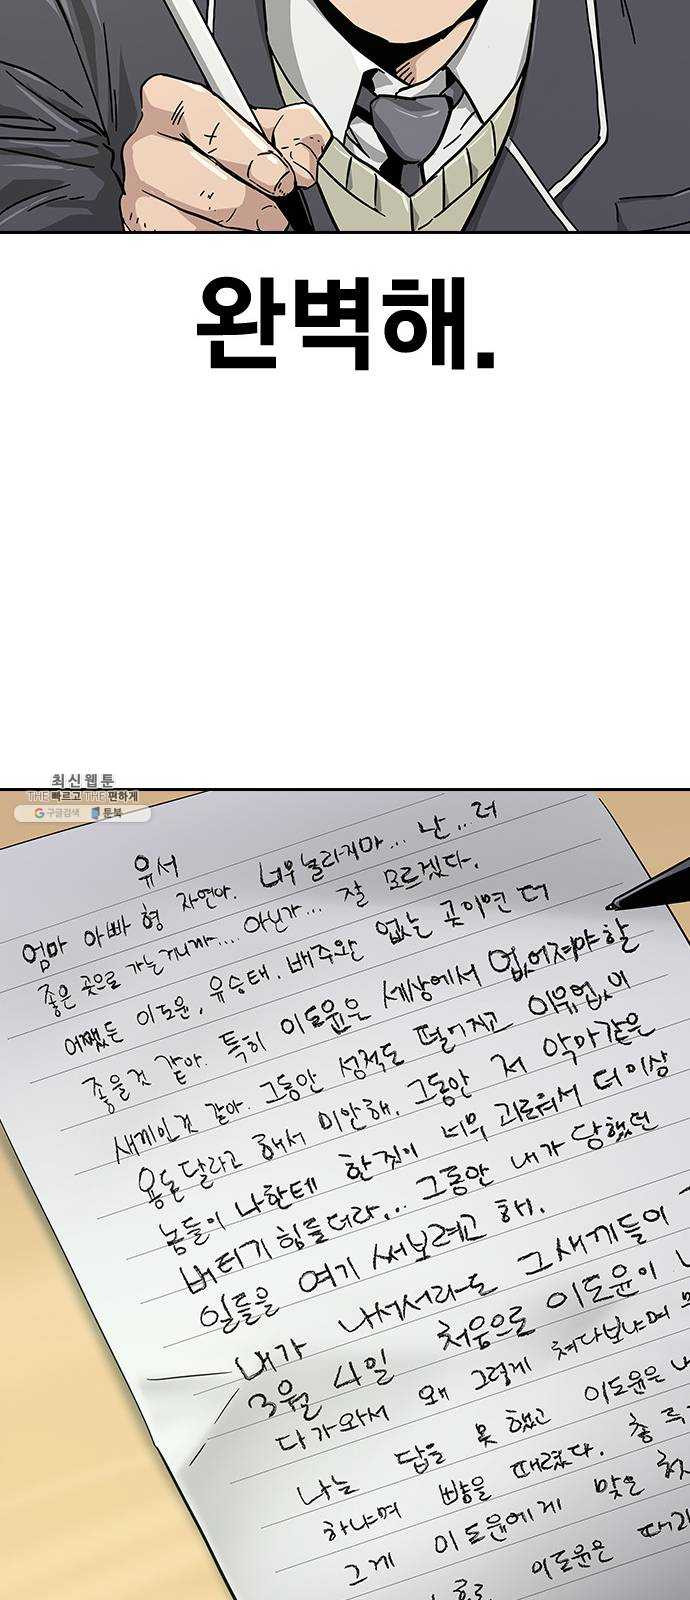 완벽해.
최신웹툰
THE빠르고 THE편하게
구글검색 툰북
유서
엄마 아빠 형 자연아. 너무 놀라지마... 난.. 더
좋은 곳으로 가는거니까.... 아닌가... 잘 모르겠다.
어쨌든 이도윤, 유승태, 배주완 없는 곳이면 더
좋을것 같아. 특히 이도윤은 세상에서 없어져야할
새끼인것 같아. 그동안 성적도 떨어지고 이유없이
용돈달라고 해서 미안해. 그동안 저 악마같은
놈들이 나한테 한짓이 너무 괴로워서 더이상
버티기 힘들더라... 그동안 내가 당했던
일들을 여기 써보려고 해.
내가 나서서라도 그새끼들이
3월 4일 처음으로 이도윤이
다가와서 왜 그렇게 쳐다보냐며
나는 답을 못 했고 이도윤은
하냐며 뺨을 때렸다. 총
그게 이도윤에게 맞은
이도윤은